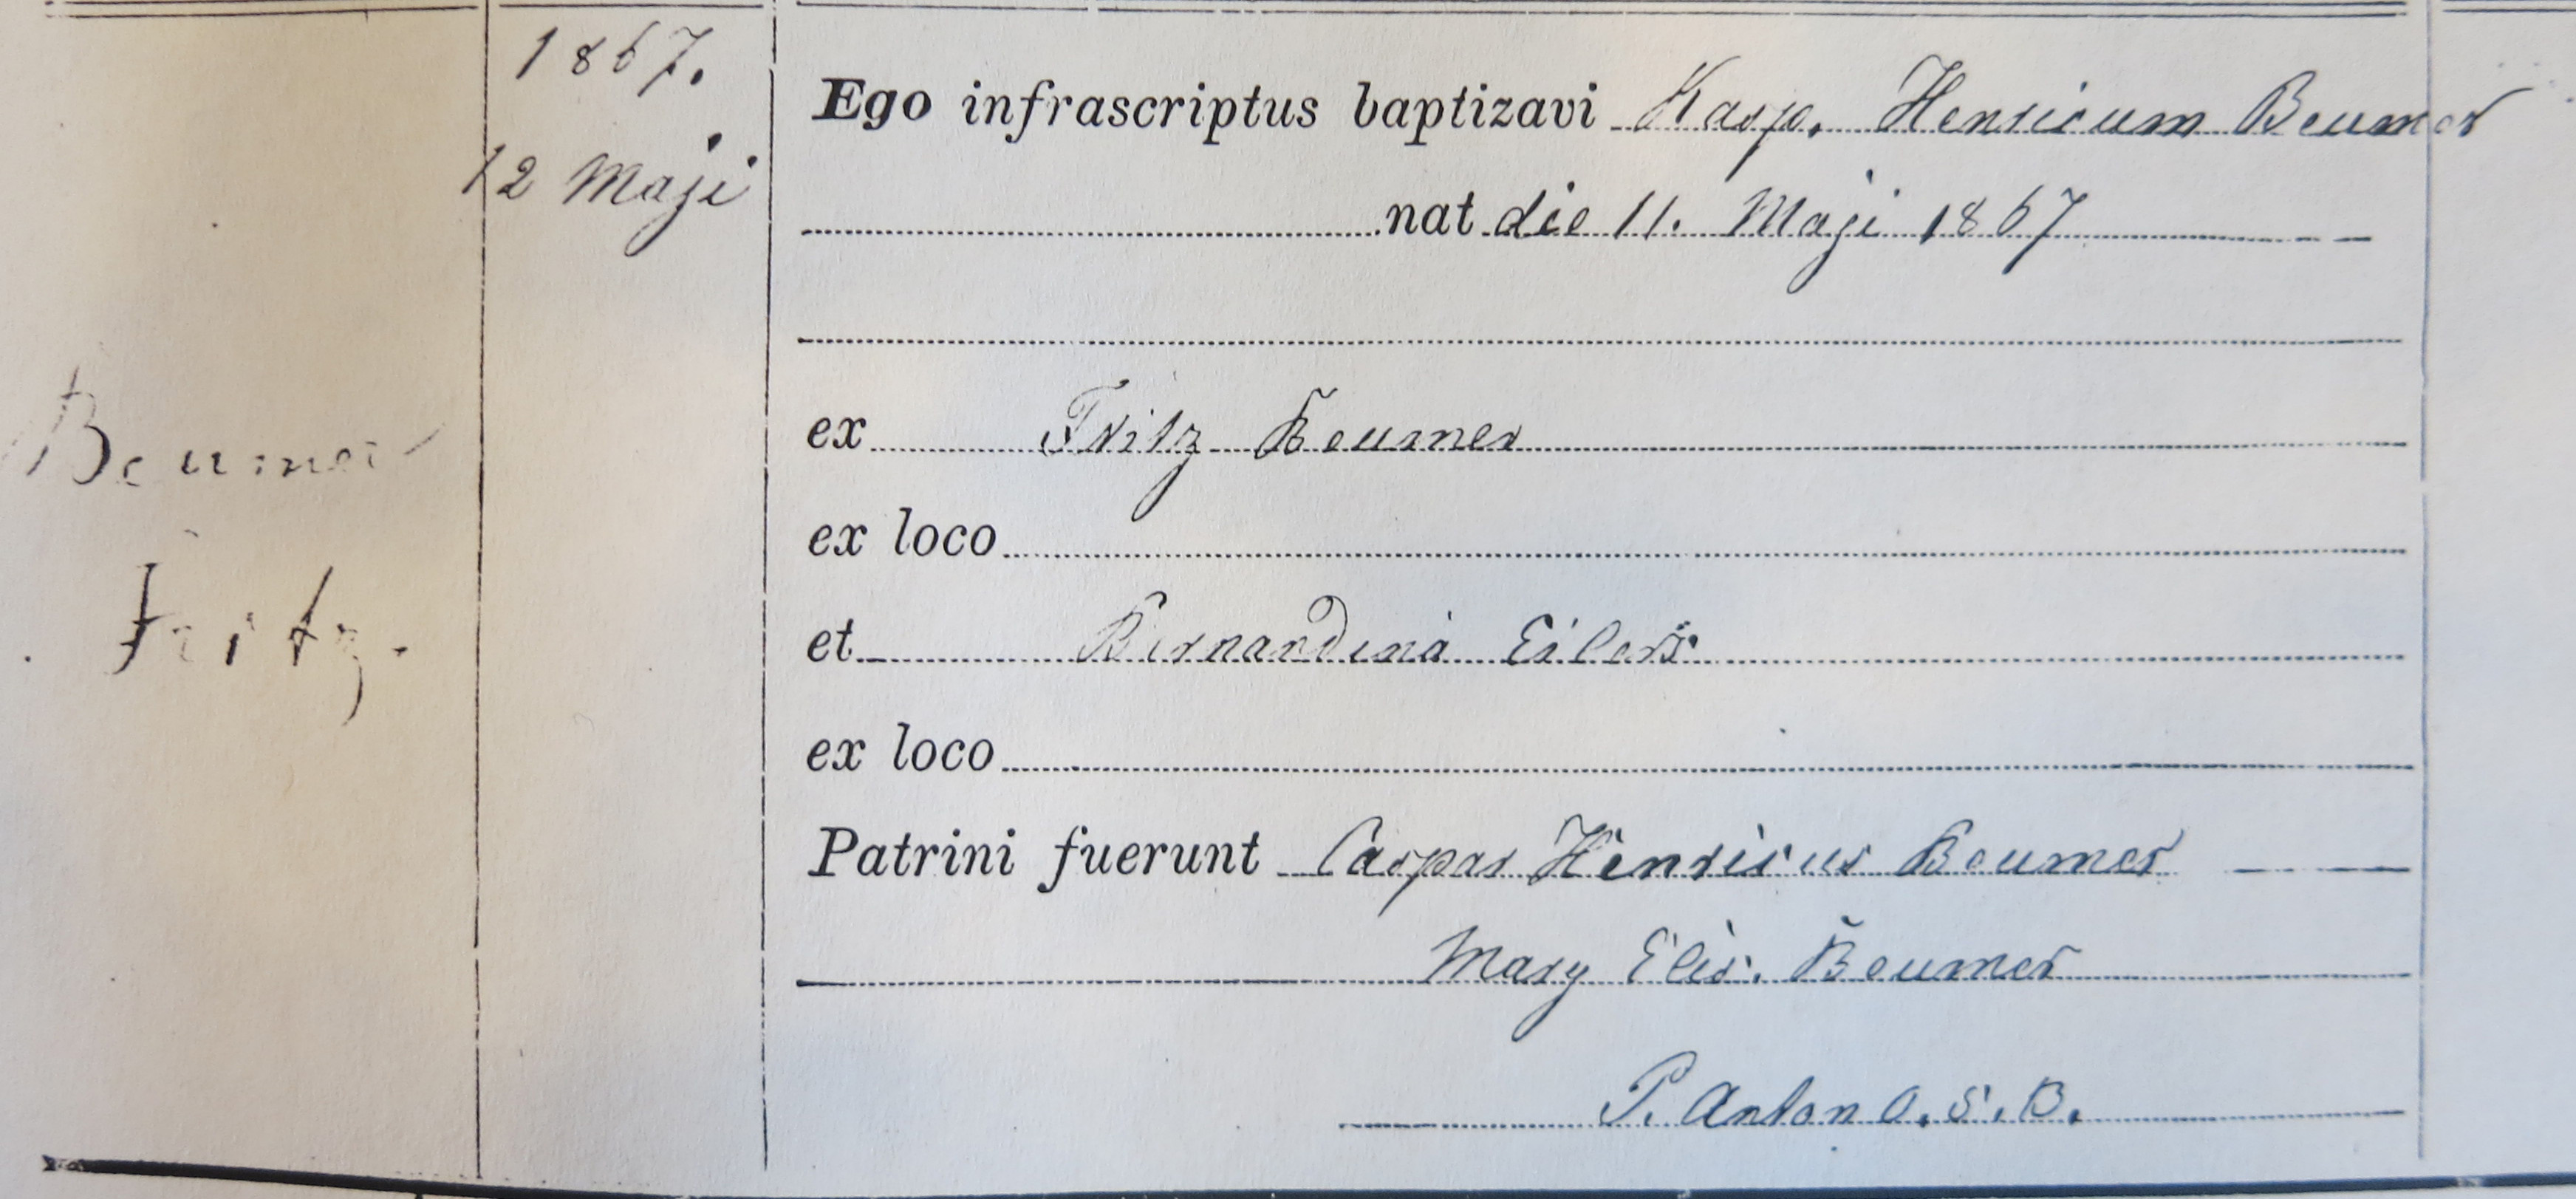 1867.
12 Maji
Beumer
Fritz.
Ego infrascriptus baptizavi Kasp. Henricum Beumer
nat die 11. Maji 1867
ex Fritz Beumer
ex loco
et Bernandina Eilers.
ex loco
Patrini fuerunt Caspar Henricus Beumer
Mary Elis. Beumer
P. Anton O.S.B.